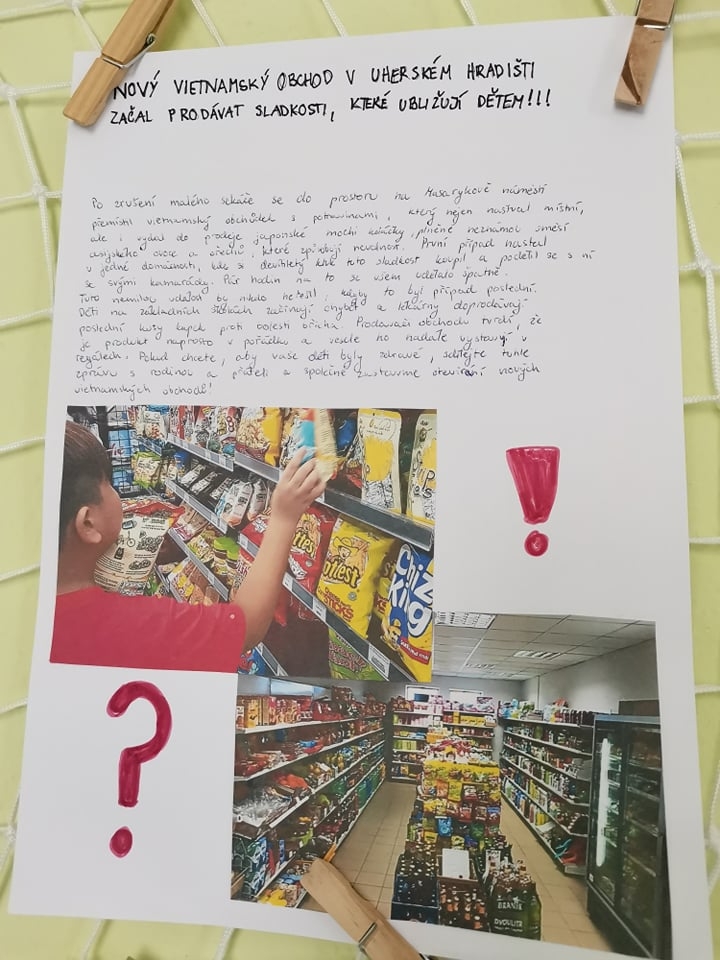 NOVÝ VIETNAMSKÝ OBCHOD V UHERSKÉM HRADIŠTI
ZAČAL PRODÁVAT SLADKOSTI, KTERÉ UBLIŽUJÍ DĚTEM!!!
Po zrušení malého sekáče se do prostoru na Masarykově náměstí
přemístil vietnamský obchůdek s potravinami, který nejen naštval místní,
ale i vydal do prodeje japonské mochi koláčky, plněné neznámou směsí
asijského ovoce a ořechů, které způsobují nevolnost. První případ nastal
v jedné domácnosti, kde si devítiletý kluk tuto sladkost koupil a podělil se s ní
se svými kamarády. Pár hodin na to se všem udělalo špatně.
Tuto nemilou událost by nikdo neřešil, kdyby to byl případ poslední.
Děti na základních školách začínají chybět a lékárny doprodávají
poslední kusy kapek proti bolesti břicha. Prodavači obchodu tvrdí, že
je produkt naprosto v pořádku a vesele ho nadále vystavují v
regálech. Pokud chcete, aby vaše děti byly zdravé, sdílejte tuhle
zprávu s rodinou a přáteli a společně zastavme otevírání nových
vietnamských obchodů!
!
?
Chiz
King
BRANIK
DVOULITR